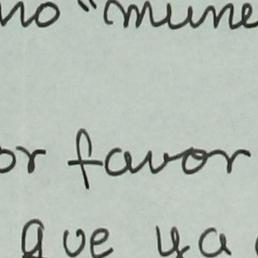 no "mune
or favor
que ya